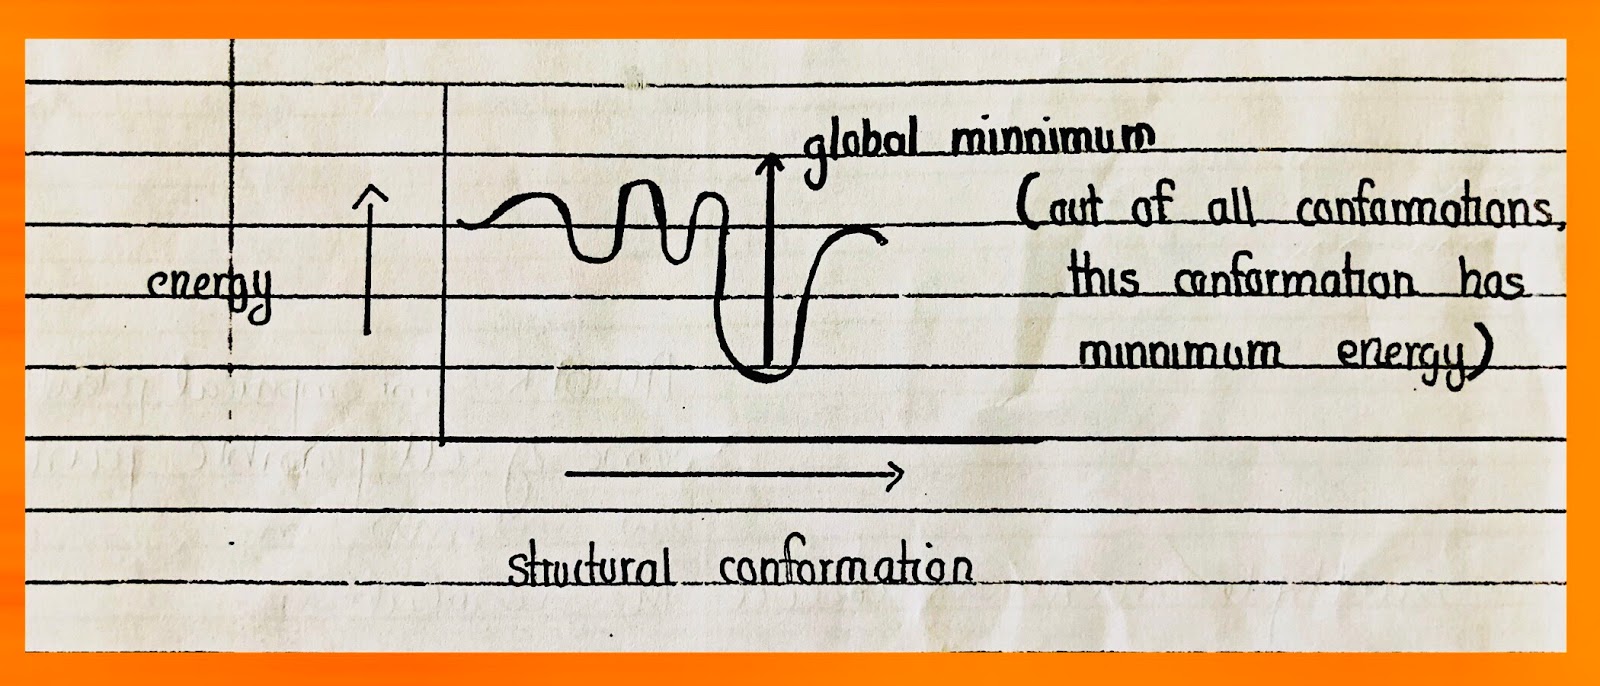 global minnimum
(out of all conformations,
this conformation has
minnimum energy)
energy
structural conformation